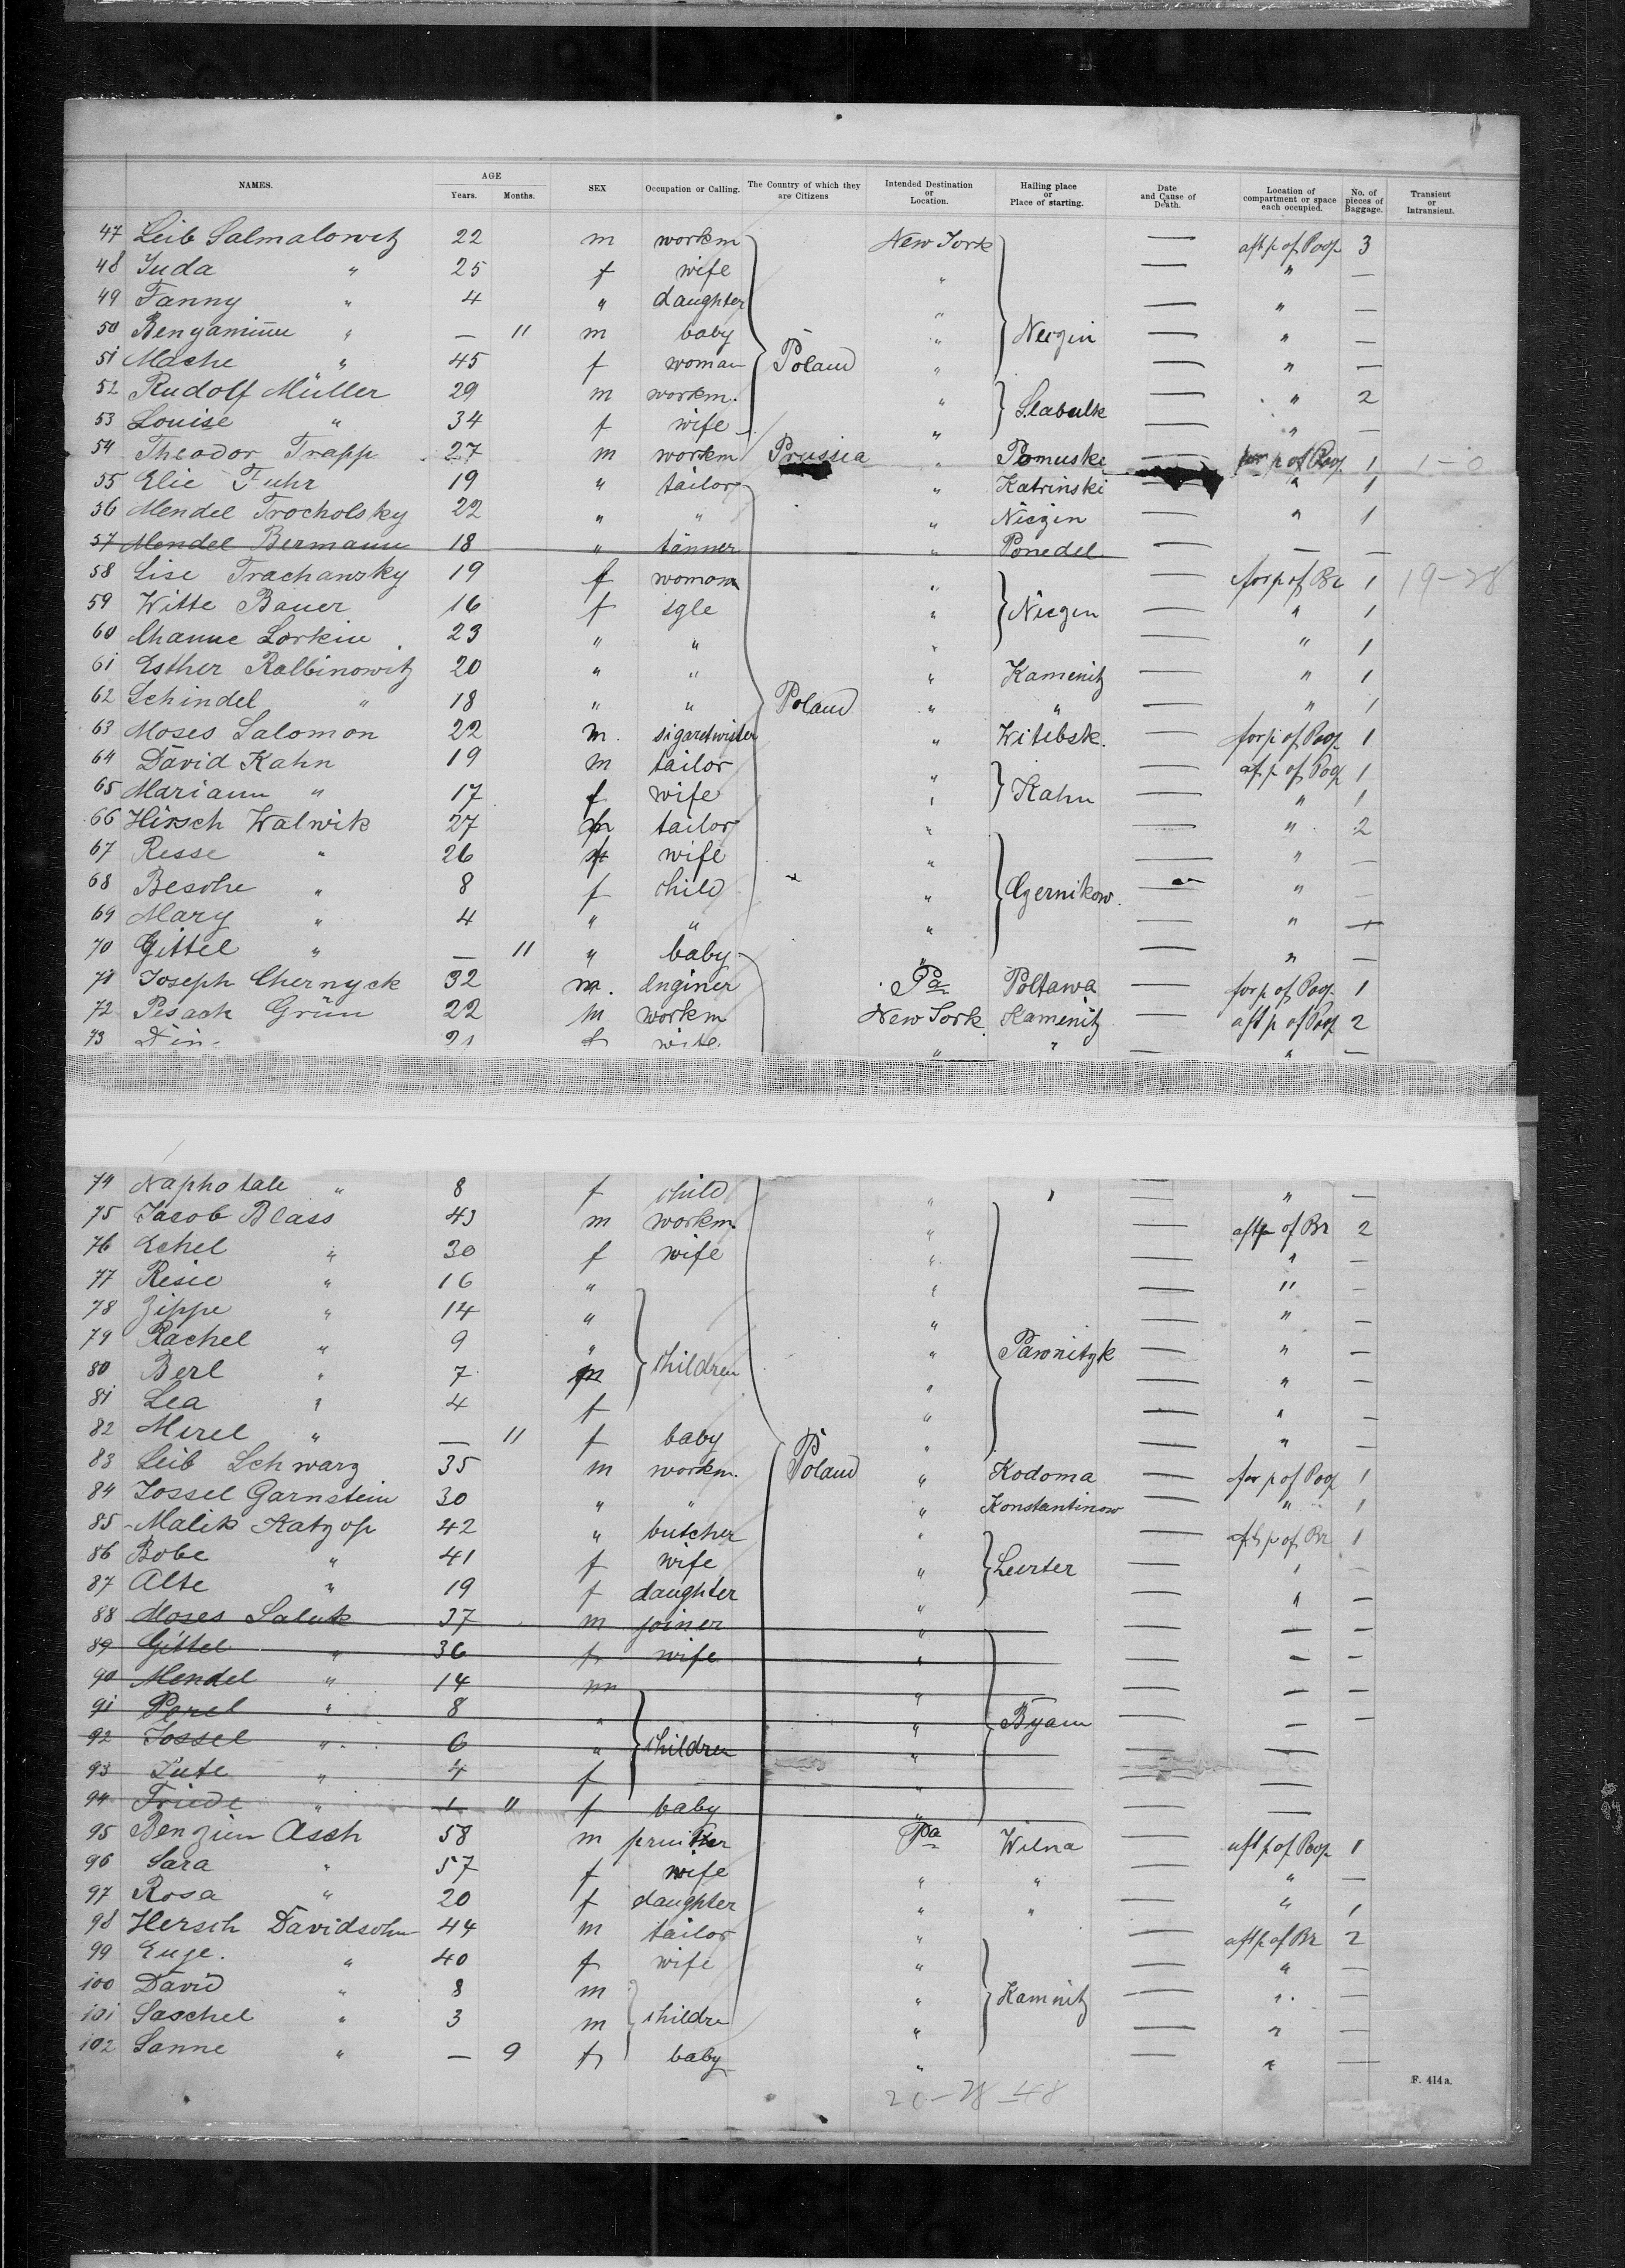 NAMES. AGE Years. Months. SEX Occupation or Calling. The Country of which they are Citizens Intended Destination or Location. Hailing place or Place of starting. Date and Cause of Death. Location of compartment or space each occupied. No. of pieces of Baggage. Transient or Intransient.
47 Leib Salmalowitz 22 m workm New York — aft p of Poop 3
48 Juda " 25 f wife " — " —
49 Fanny " 4 " daughter " — " —
50 Benyaminu " — 11 m baby " Niezin — " —
51 Mache " 45 f woman Poland " — " —
52 Rudolf Müller 29 m workm. " — " 2
53 Louise " 34 f wife " Slabulk — " —
54 Theodor Trapp 27 m workm Prussia " Pomuske — for p of Poop 1 1-0
55 Elie Fuhr 19 " tailor " Katrinski — " 1
56 Mendel Trocholsky 22 " " " Niezin — " 1
57 Mendel Bermann 18 " tanner " Ponedel — —
58 Lise Trachansky 19 f woman " — for p of Br 1 19-28
59 Witte Bauer 16 f sgle " Niezin — " 1
60 Channe Lorkin 23 " " " — " 1
61 Esther Ralbinowitz 20 " " " Kamenitz — " 1
62 Schindel " 18 " " Poland " " — " 1
63 Moses Salomon 22 m. sigaretwister " Witebsk. — for p of Poop 1
64 David Kahn 19 m tailor " — af p of Poop 1
65 Mariann " 17 f wife " Kahn — " 1
66 Hirsch Walwik 27 m tailor " — " 2
67 Resse " 26 f wife " — " —
68 Besche " 8 f child " Czernikow. — " —
69 Mary " 4 " " " — " —
70 Gittel " — 11 " baby " — " —
71 Joseph Chernyck 32 m. Enginer Pa Poltawa — for p of Poop 1
72 Pesach Grün 22 m workm New York Kamenitz — aft p of Poop 2
73 21 f wife " " — " —
74 Naphotale " 8 f child " " — " —
75 Jacob Blass 43 m workm. " — aft p of Br 2
76 Echel " 30 f wife " — " —
77 Resie " 16 " " — " —
78 Zippe " 14 " " — " —
79 Rachel " 9 " " Pawnitzk — " —
80 Berl " 7 m children " — " —
81 Lea " 4 f " — " —
82 Mirel " — 11 f baby " — " —
83 Leib Schwarz 35 m workm. Poland " Kodoma — for p of Poop 1
84 Jossel Garnstein 30 " " " Konstantinow — " 1
85 Malik Katzop 42 " butcher " — aft p of Br 1
86 Bobe " 41 f wife " Leerter — " —
87 Alte " 19 f daughter " — " —
88 Moses Saluk 37 m joiner " — — —
89 Gittel " 36 f wife " — — —
90 Mendel " 14 m " — — —
91 Perel " 8 " " Byam — — —
92 Jossel " 6 " children " — —
93 Jute " 4 f " — —
94 Friede " 11 f baby " — —
95 Benziem Asch 58 m Pa Wilna aft p of Poop 1
96 Sara " 57 f wife " " — " —
97 Rosa " 20 f daughter " " — " 1
98 Hersch Davidsohn 44 m tailor " — aft p of Br 2
99 Euge. " 40 f wife " — " —
100 David " 8 m " Kamnitz — " —
101 Saschel " 3 m childre " — " —
102 Sanne " — 9 f baby " — " —
F. 414 a.
20-28-48